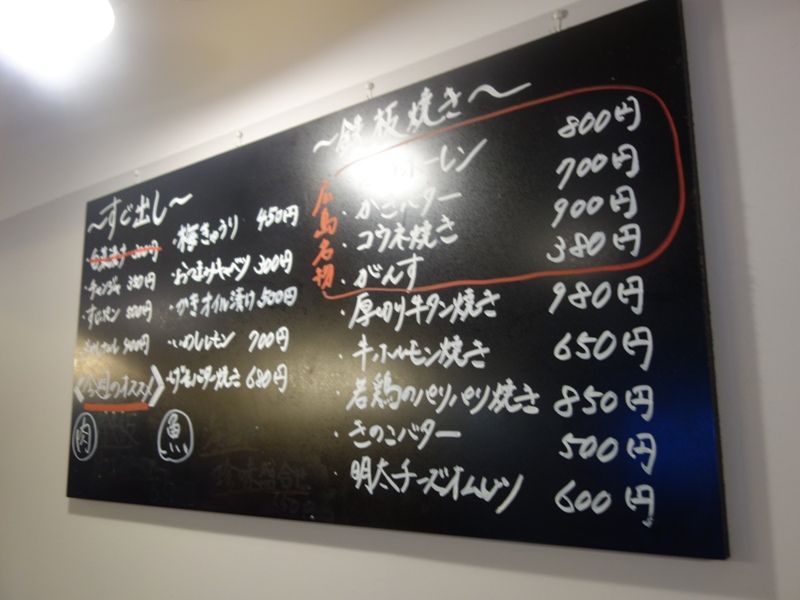 ～すぐ出し～
チャンジャ 350円
〈今週のオススメ〉
肉
魚
・梅きゅうり 450円
・おつまみキャベツ 300円
・かきオイル漬け 500円
700円
焼き 680円
～鉄板焼き～
広島名物
800円
・かきバター 700円
・コウネ焼き 900円
・がんす 380円
・厚切り牛タン焼き 980円
・牛ホルモン焼き 650円
・若鶏のパリパリ焼き 850円
・きのこバター 500円
・明太チーズオムレツ 600円